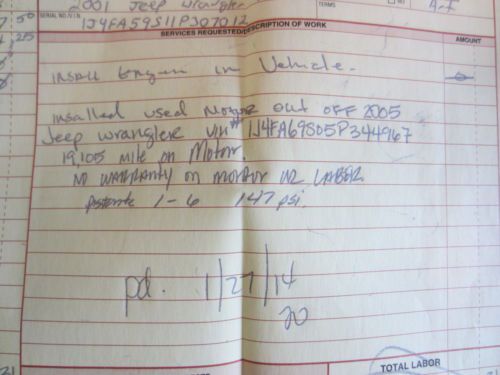 2001 Jeep Wrangler
TERMS
NO
A-T
SERIAL NO./V.I.N.
1J4FA59S11P307012
7.50
SERVICES REQUESTED/DESCRIPTION OF WORK
AMOUNT
Install Engin in Vehicle.
Installed used Motor out off 2005
Jeep wrangler vin# 1J4FA69S05P344967
19,105 mile on Motor.
NO WARRANTY ON MOTOR OR LABER
1-6 147 psi.
pd. 1/27/14
20
TOTAL LABOR